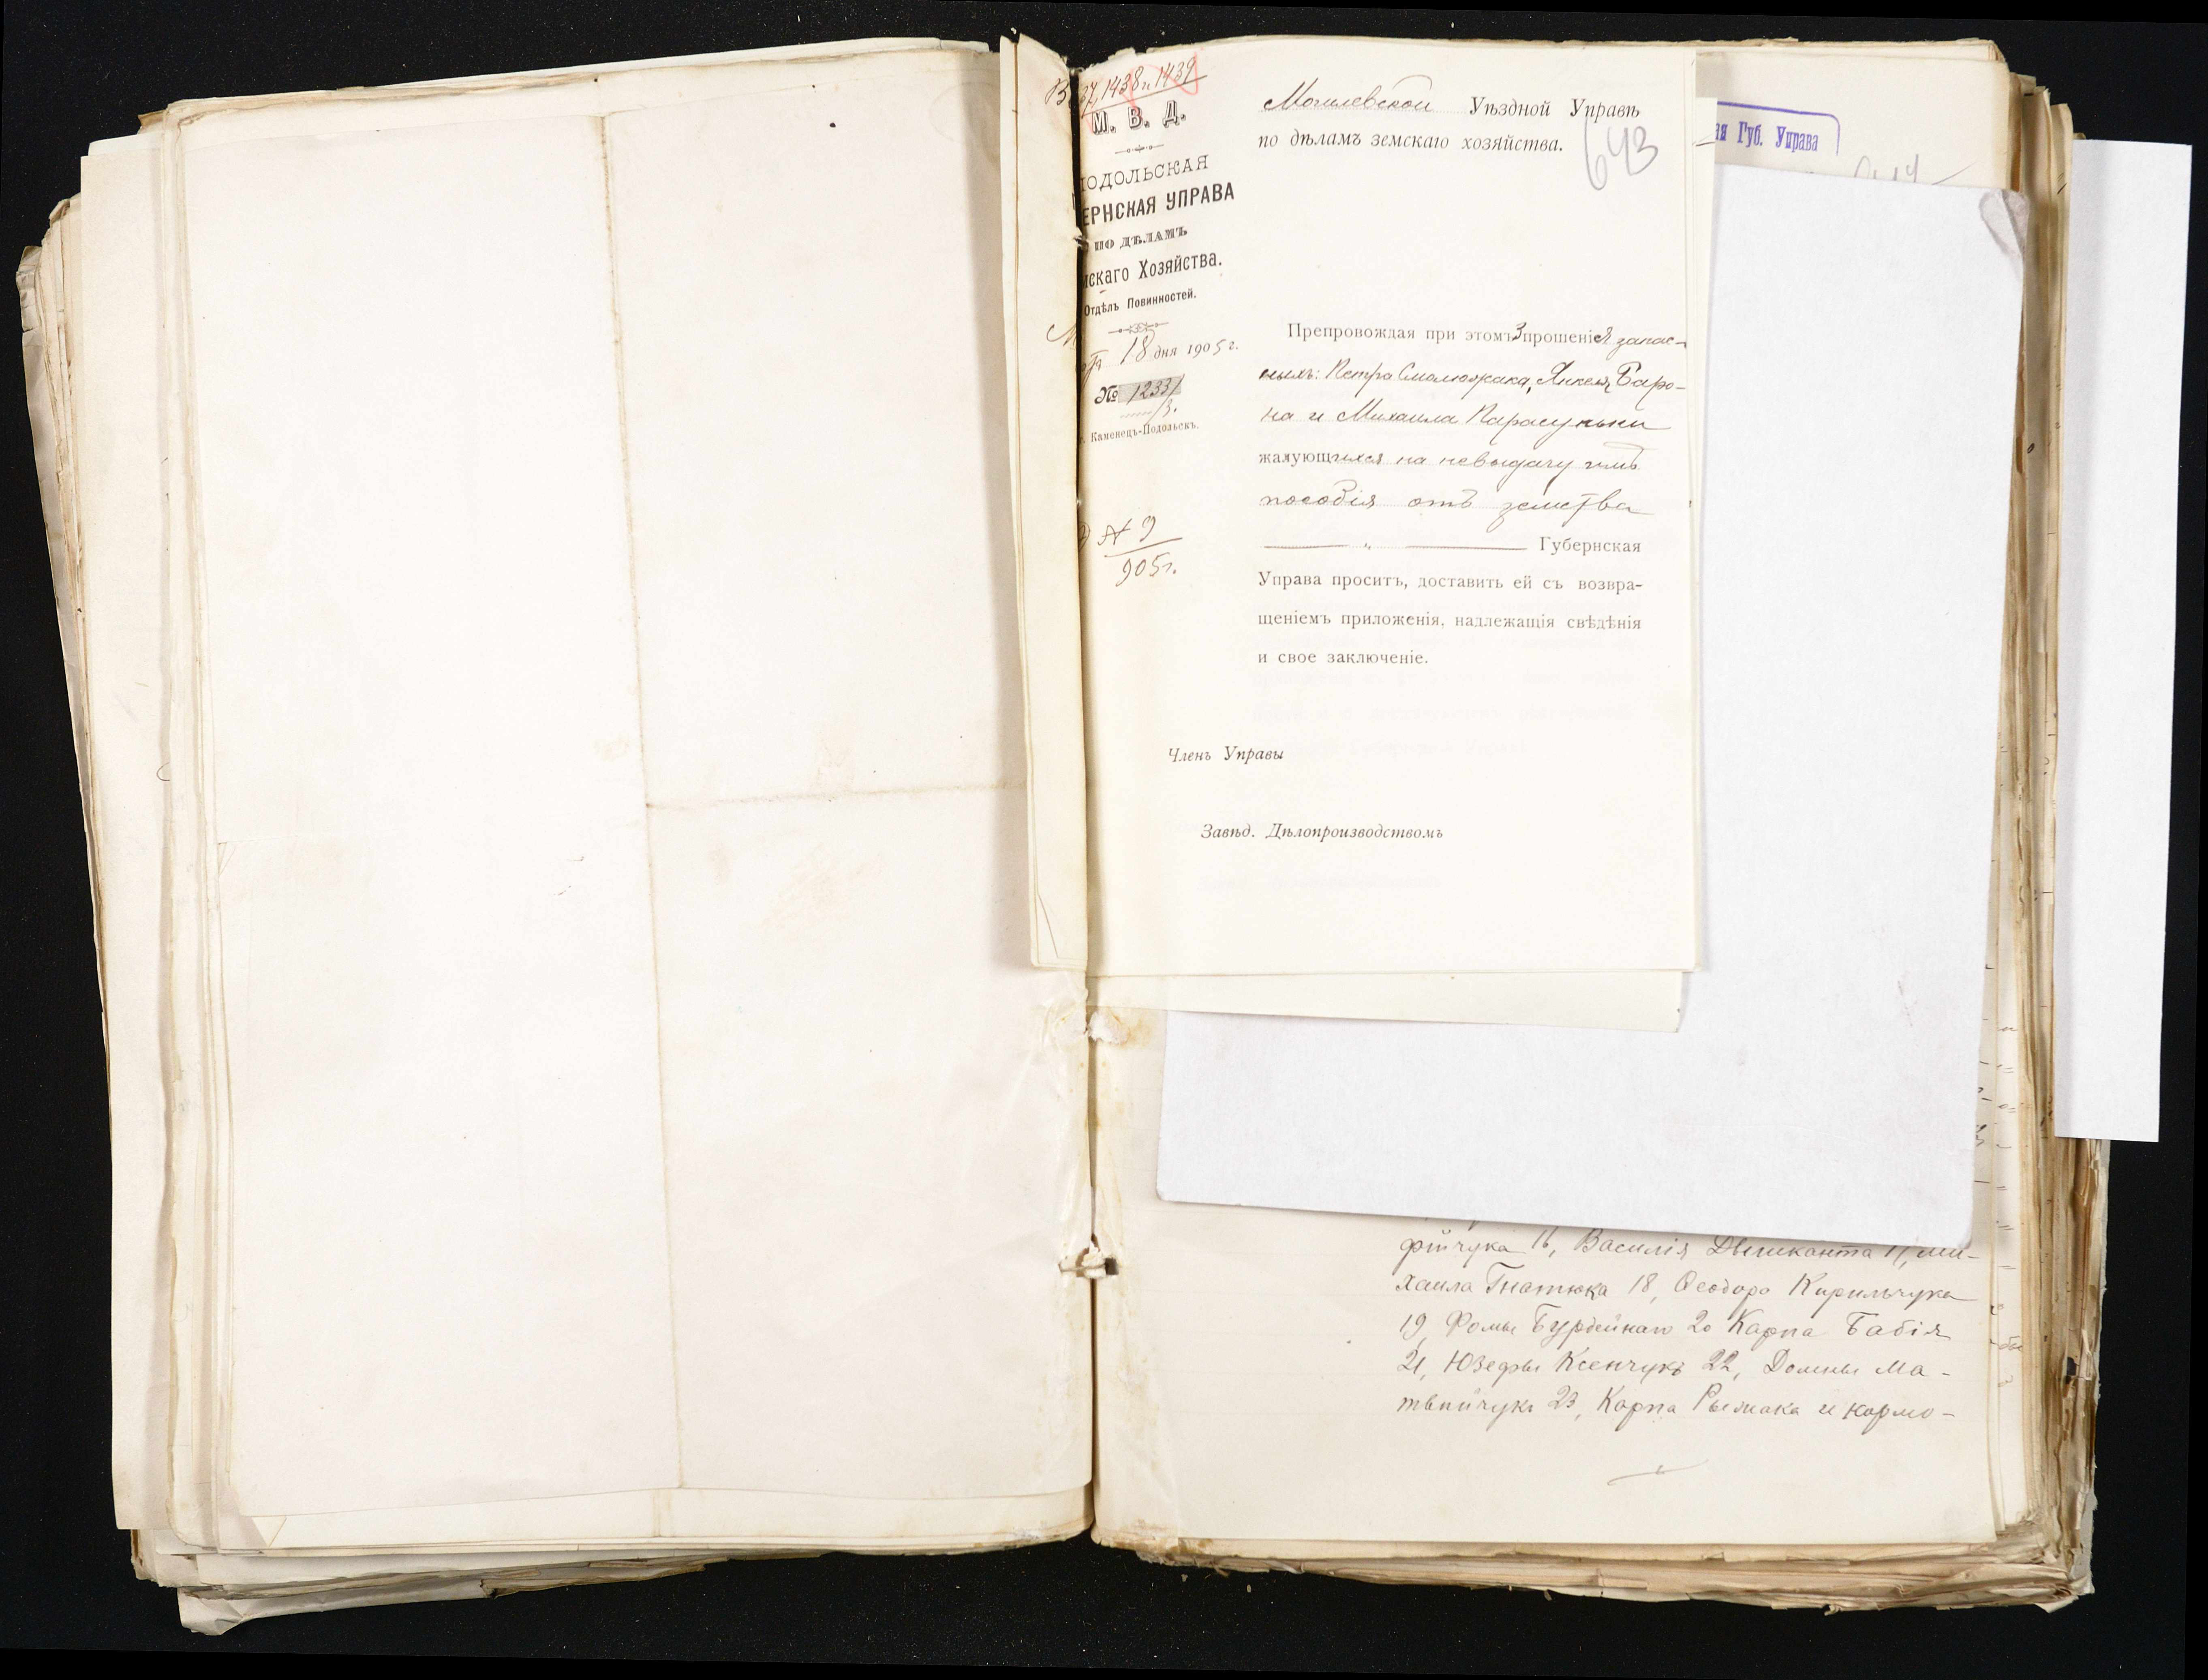 1438 и 1439
М. В. Д.
ПОДОЛЬСКАЯ
ЕРНСКАЯ УПРАВА
ПО ДѢЛАМЪ
мскаго Хозяйства.
Отдѣлъ Повинностей.
18 дня 1905 г.
№ 12331
/3.
г. Каменецъ-Подольскъ.
№ 9
905 г.
Могилевской Уѣздной Управѣ
по дѣламъ земскаго хозяйства.
643
Препровождая при этомъ 3 прошенія запас-
ныхъ: Петра Смолюжака, Янкеля Баро-
на и Михаила Парасуньки
жалующихся на невыдачу имъ
пособія отъ земства
Губернская
Управа проситъ, доставить ей съ возвра-
щеніемъ приложенія, надлежащія свѣдѣнія
и свое заключеніе.
Членъ Управы
Завѣд. Дѣлопроизводствомъ
ая Губ. Управа
фійчука 16, Василія 17, Ми-
хаила Гнатюка 18, Ѳеодора Кирильчука
19, Ѳомы Бурдейнаго 20 Карпа Бабія
21, Юзефы Ксенчукъ 22, Домны Ма-
твѣйчукъ 23, Карпа и